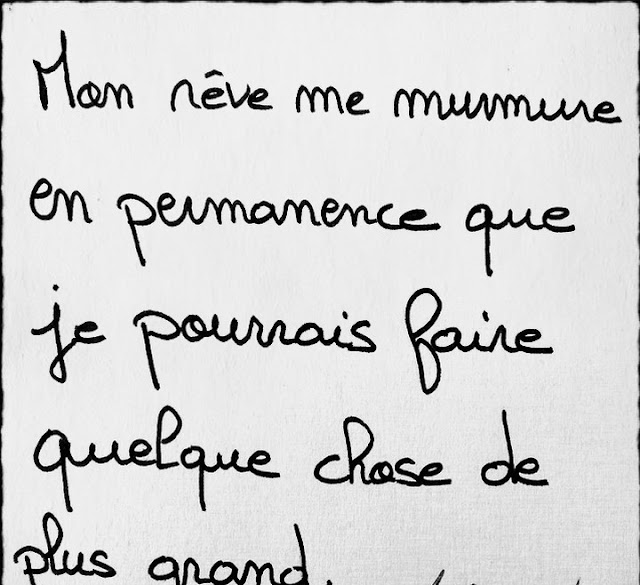 Mon rêve me murmure
en permanence que
je pourrais faire
quelque chose de
plus grand.